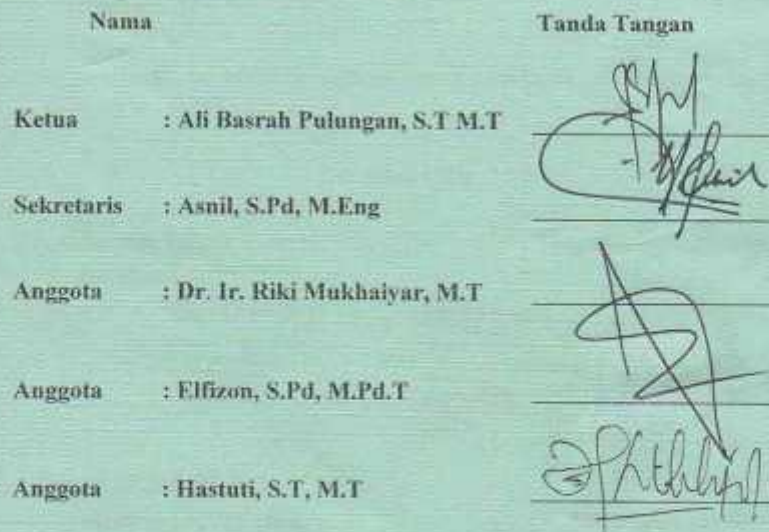 Nama Tanda Tangan
Ketua : Ali Basrah Pulungan, S.T M.T
Sekretaris : Asnil, S.Pd, M.Eng
Anggota : Dr. Ir. Riki Mukhaiyar, M.T
Anggota : Elfizon, S.Pd, M.Pd.T
Anggota : Hastuti, S.T, M.T